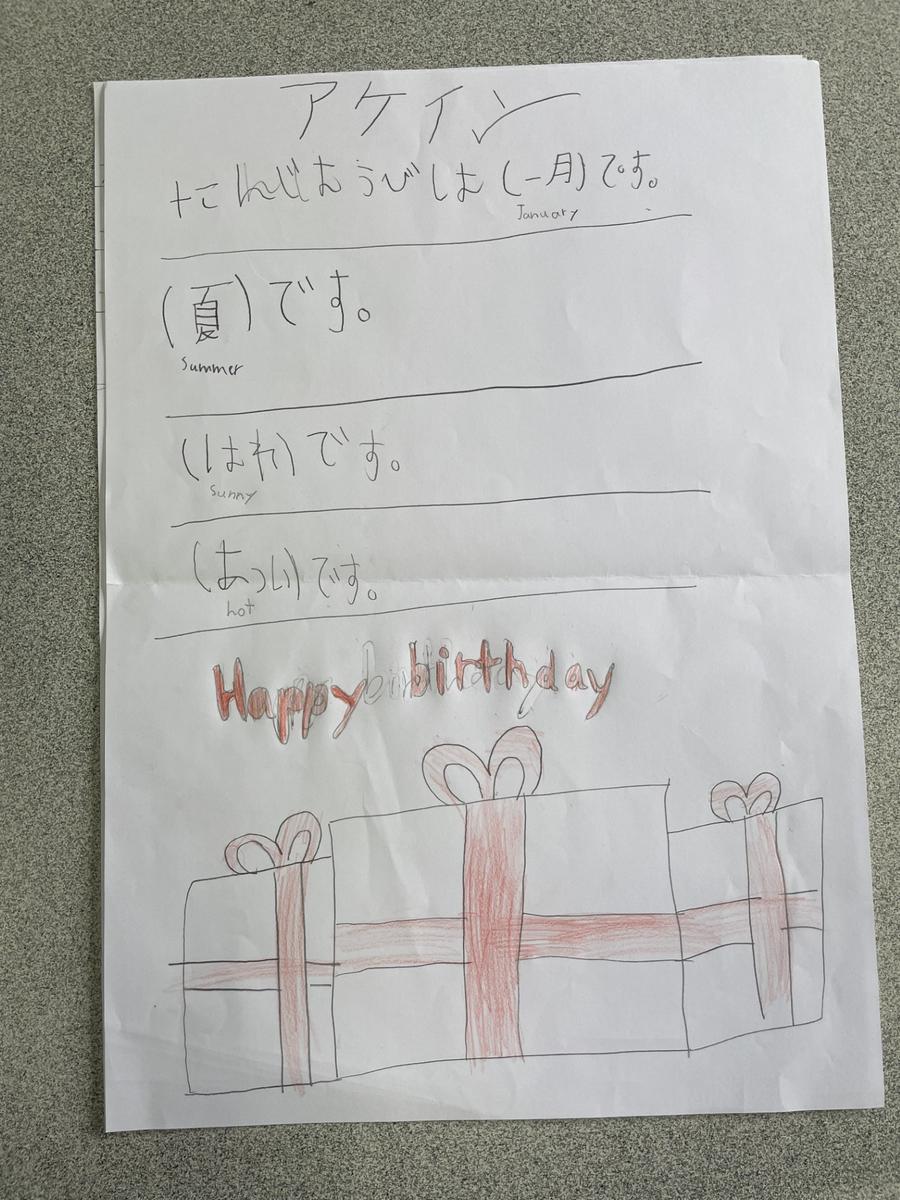 アケイン
たんじおうびは(一月)です。
January
(夏)です。
Summer
(はれ)です。
Sunny
(あつい)です。
hot
Happy birthday